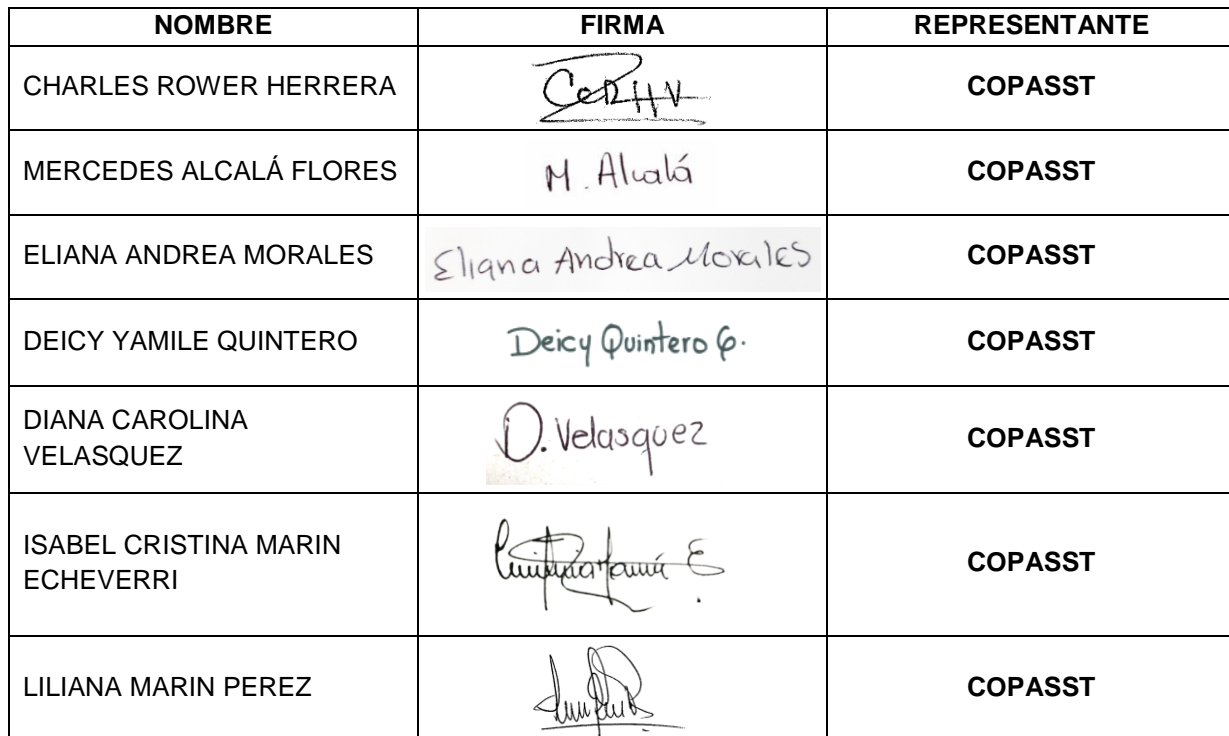 NOMBRE FIRMA REPRESENTANTE
CHARLES ROWER HERRERA CORHV COPASST
MERCEDES ALCALÁ FLORES M. Alcalá COPASST
ELIANA ANDREA MORALES Eliana Andrea Morales COPASST
DEICY YAMILE QUINTERO Deicy Quintero G. COPASST
DIANA CAROLINA
VELASQUEZ D. Velasquez COPASST
ISABEL CRISTINA MARIN
ECHEVERRI COPASST
LILIANA MARIN PEREZ COPASST